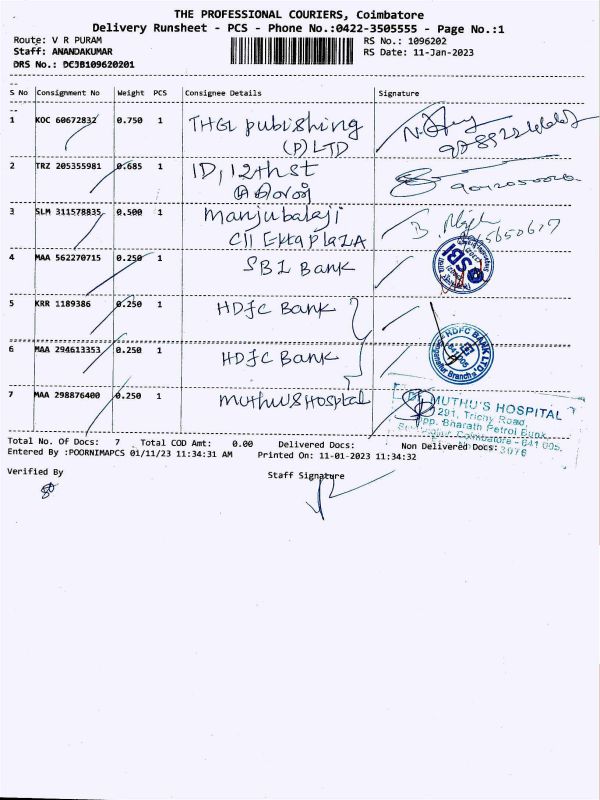 THE PROFESSIONAL COURIERS, Coimbatore
Delivery Runsheet - PCS - Phone No.:0422-3505555 - Page No.:1
Route: V R PURAM RS No.: 1096202
Staff: ANANDAKUMAR RS Date: 11-Jan-2023
DRS No.: DCJB109620201
S No Consignment No Weight PCS Consignee Details Signature
1 KOC 60672832 0.750 1 THGL pubishing
(P) LTD
2 TRZ 205355981 0.685 1 ID, 12th st
3 SLM 311578835 0.500 1 Manjubalaji
C11 Ekta PlaZA
4 MAA 562270715 0.250 1 SBI Bank
SBI
5 KRR 1189386 0.250 1 HDFC Bank
6 MAA 294613353 0.250 1 HDFC Bank
HDFC BANK LTD.
7 MAA 298876400 0.250 1 Muthu's Hospital
Dr. MUTHU'S HOSPITAL
291, Trichy Road,
Opp. Bharath Petrol Bunk,
Coimbatore - 641 005.
Total No. Of Docs: 7 Total COD Amt: 0.00 Delivered Docs: Non Delivered Docs:
Entered By :POORNIMAPCS 01/11/23 11:34:31 AM Printed On: 11-01-2023 11:34:32
Verified By Staff Signature